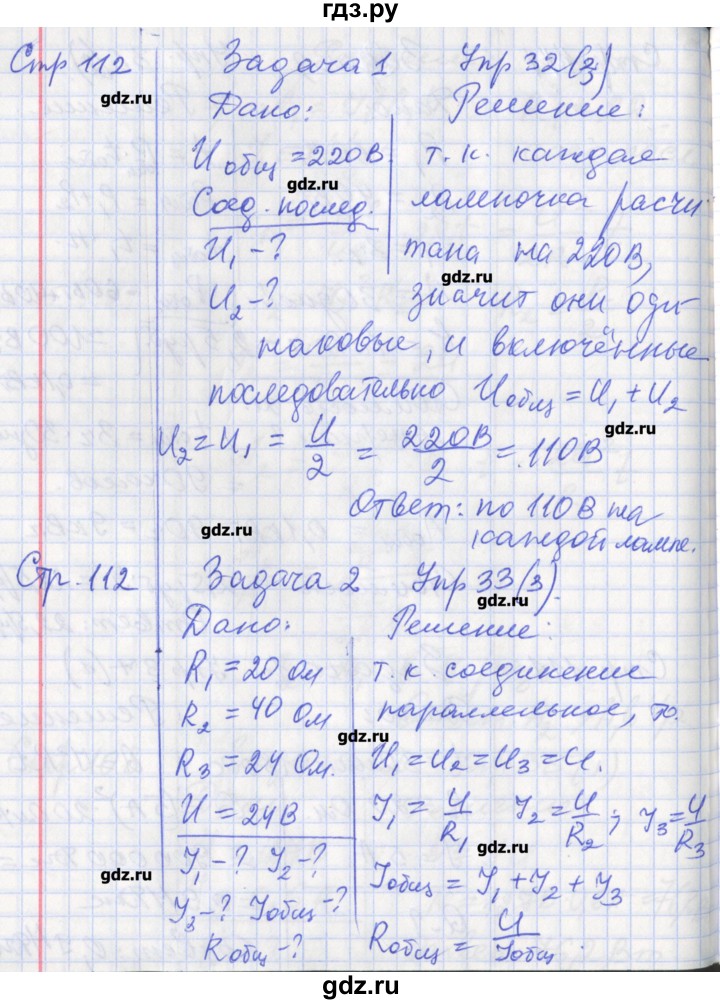 гдз.ру
Стр 112 Задача 1 Упр 32(2/3)
gdz.ru
Дано: Решение:
Uобщ = 220В т. к. каждая
gdz.ru
Соед. послед. лампочка расчи
U1 - ? тана на 220В,
gdz.ru
U2 - ? значит они оди
gdz.ru
наковые, и включённые
последовательно Uобщ = U1 + U2
gdz.ru
U2 = U1 = U/2 = 220В/2 = 110В
Ответ: по 110В на
gdz.ru
каждой лампе.
Стр. 112 Задача 2 Упр 33(3).
gdz.ru gdz.ru
Дано: Решение:
R1 = 20 Ом т. к. соединение
R2 = 40 Ом параллельное, то.
gdz.ru
R3 = 24 Ом. U1 = U2 = U3 = U.
U = 24В I1 = U/R1 I2 = U/R2; I3 = U/R3
gdz.ru
I1 - ? I2 - ? Iобщ = I1 + I2 + I3
gdz.ru
I3 - ? Iобщ - ?
Rобщ - ? Rобщ = U/Iобщ.
gdz.ru
gdz.ru